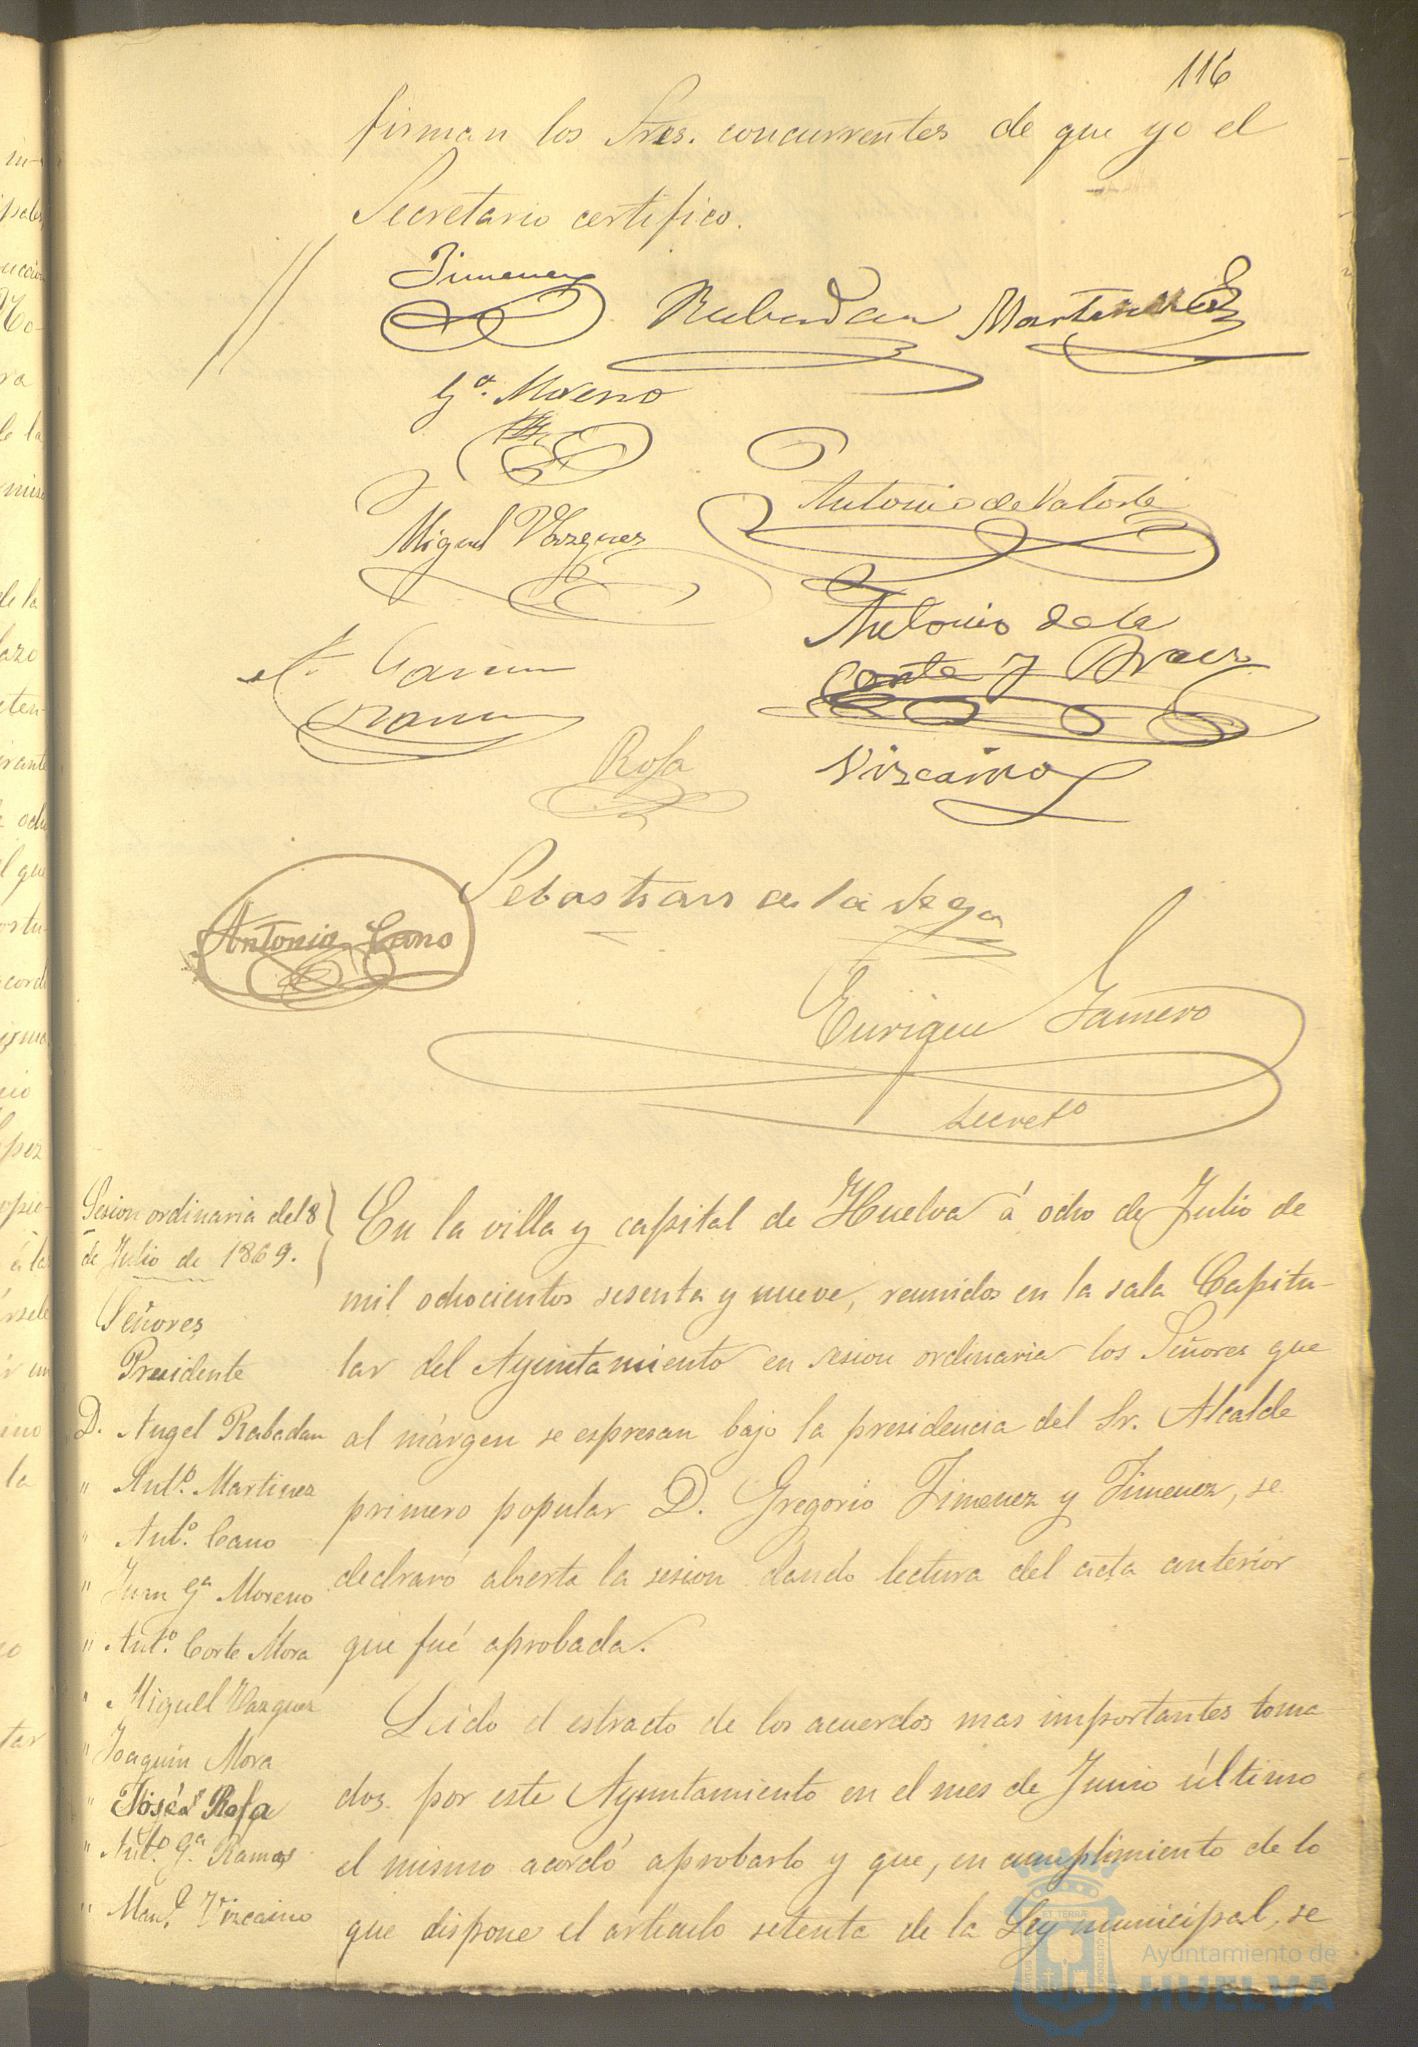 116
firman los Sres. concurrentes de que yo el
Secretario certifico.
Jimenez
Rabadan
Martinez
Gª. Moreno
Miguel Vazquez
Antonio de la Torre
Antonio de la
Corte y Bravo
A. Garcia
Ramos
Rofa
Vizcaino
Sebastian de la Vega
Antonio Cano
Enrique
Secretº
Sesion ordinaria del 8
de Julio de 1869.
Señores
Presidente
D. Angel Rabadan
" Antº. Martinez
" Antº. Cano
" Juan Gª Moreno
" Antº. Corte Mora
" Miguel Vazquez
" Joaquin Mora
" José Rofa
" Antº. Gª. Ramos
" Manl. Vizcaino
En la villa y capital de Huelva á ocho de Julio de
mil ochocientos sesenta y nueve, reunidos en la sala Capitu-
lar del Ayuntamiento en sesion ordinaria los Señores que
al márgen se espresan bajo la presidencia del Sr. Alcalde
primero popular D. Gregorio Jimenez y Jimenez, se
declaró abierta la sesion dando lectura del acta anterior
que fué aprobada.
Leido el estracto de los acuerdos mas importantes toma
dos por este Ayuntamiento en el mes de Junio último
el mismo acordó aprobarlo y que, en cumplimiento de lo
que dispone el artículo setenta de la Ley municipal, se
Ayuntamiento de
HUELVA